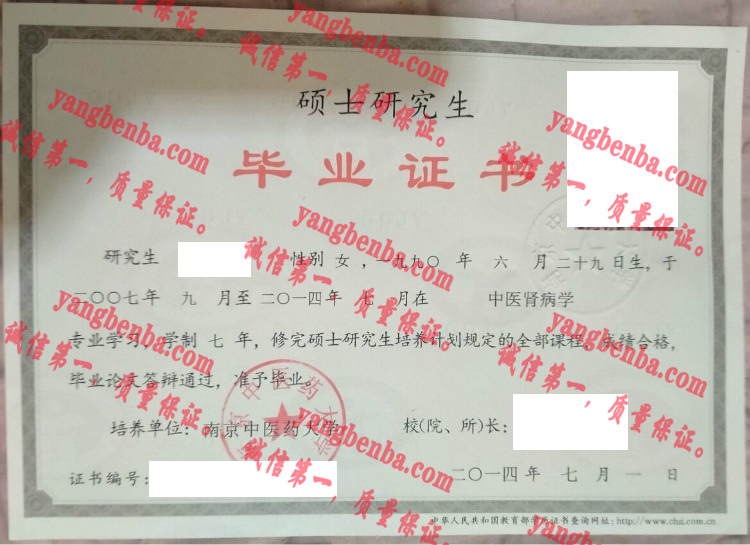 硕士研究生
毕业证书
研究生 性别 女 ，一九九〇 年 六 月二十九日生，于
二〇〇七年 九 月至二〇一四年 七 月在 中医肾病学
专业学习，学制 七 年，修完硕士研究生培养计划规定的全部课程，成绩合格，
毕业论文答辩通过，准予毕业。
培养单位：南京中医药大学
校(院、所)长：
证书编号：
二〇一四年 七 月 一 日
中华人民共和国教育部学历证书查询网址：http://www.chsi.com.cn
南京中医药大学
yangbenba.com
诚信第一，质量保证。
yangbenba.com
诚信第一，质量保证。
yangbenba.com
诚信第一，质量保证。
yangbenba.com
诚信第一，质量保证。
yangbenba.com
诚信第一，质量保证。
yangbenba.com
诚信第一，质量保证。
yangbenba.com
诚信第一，质量保证。